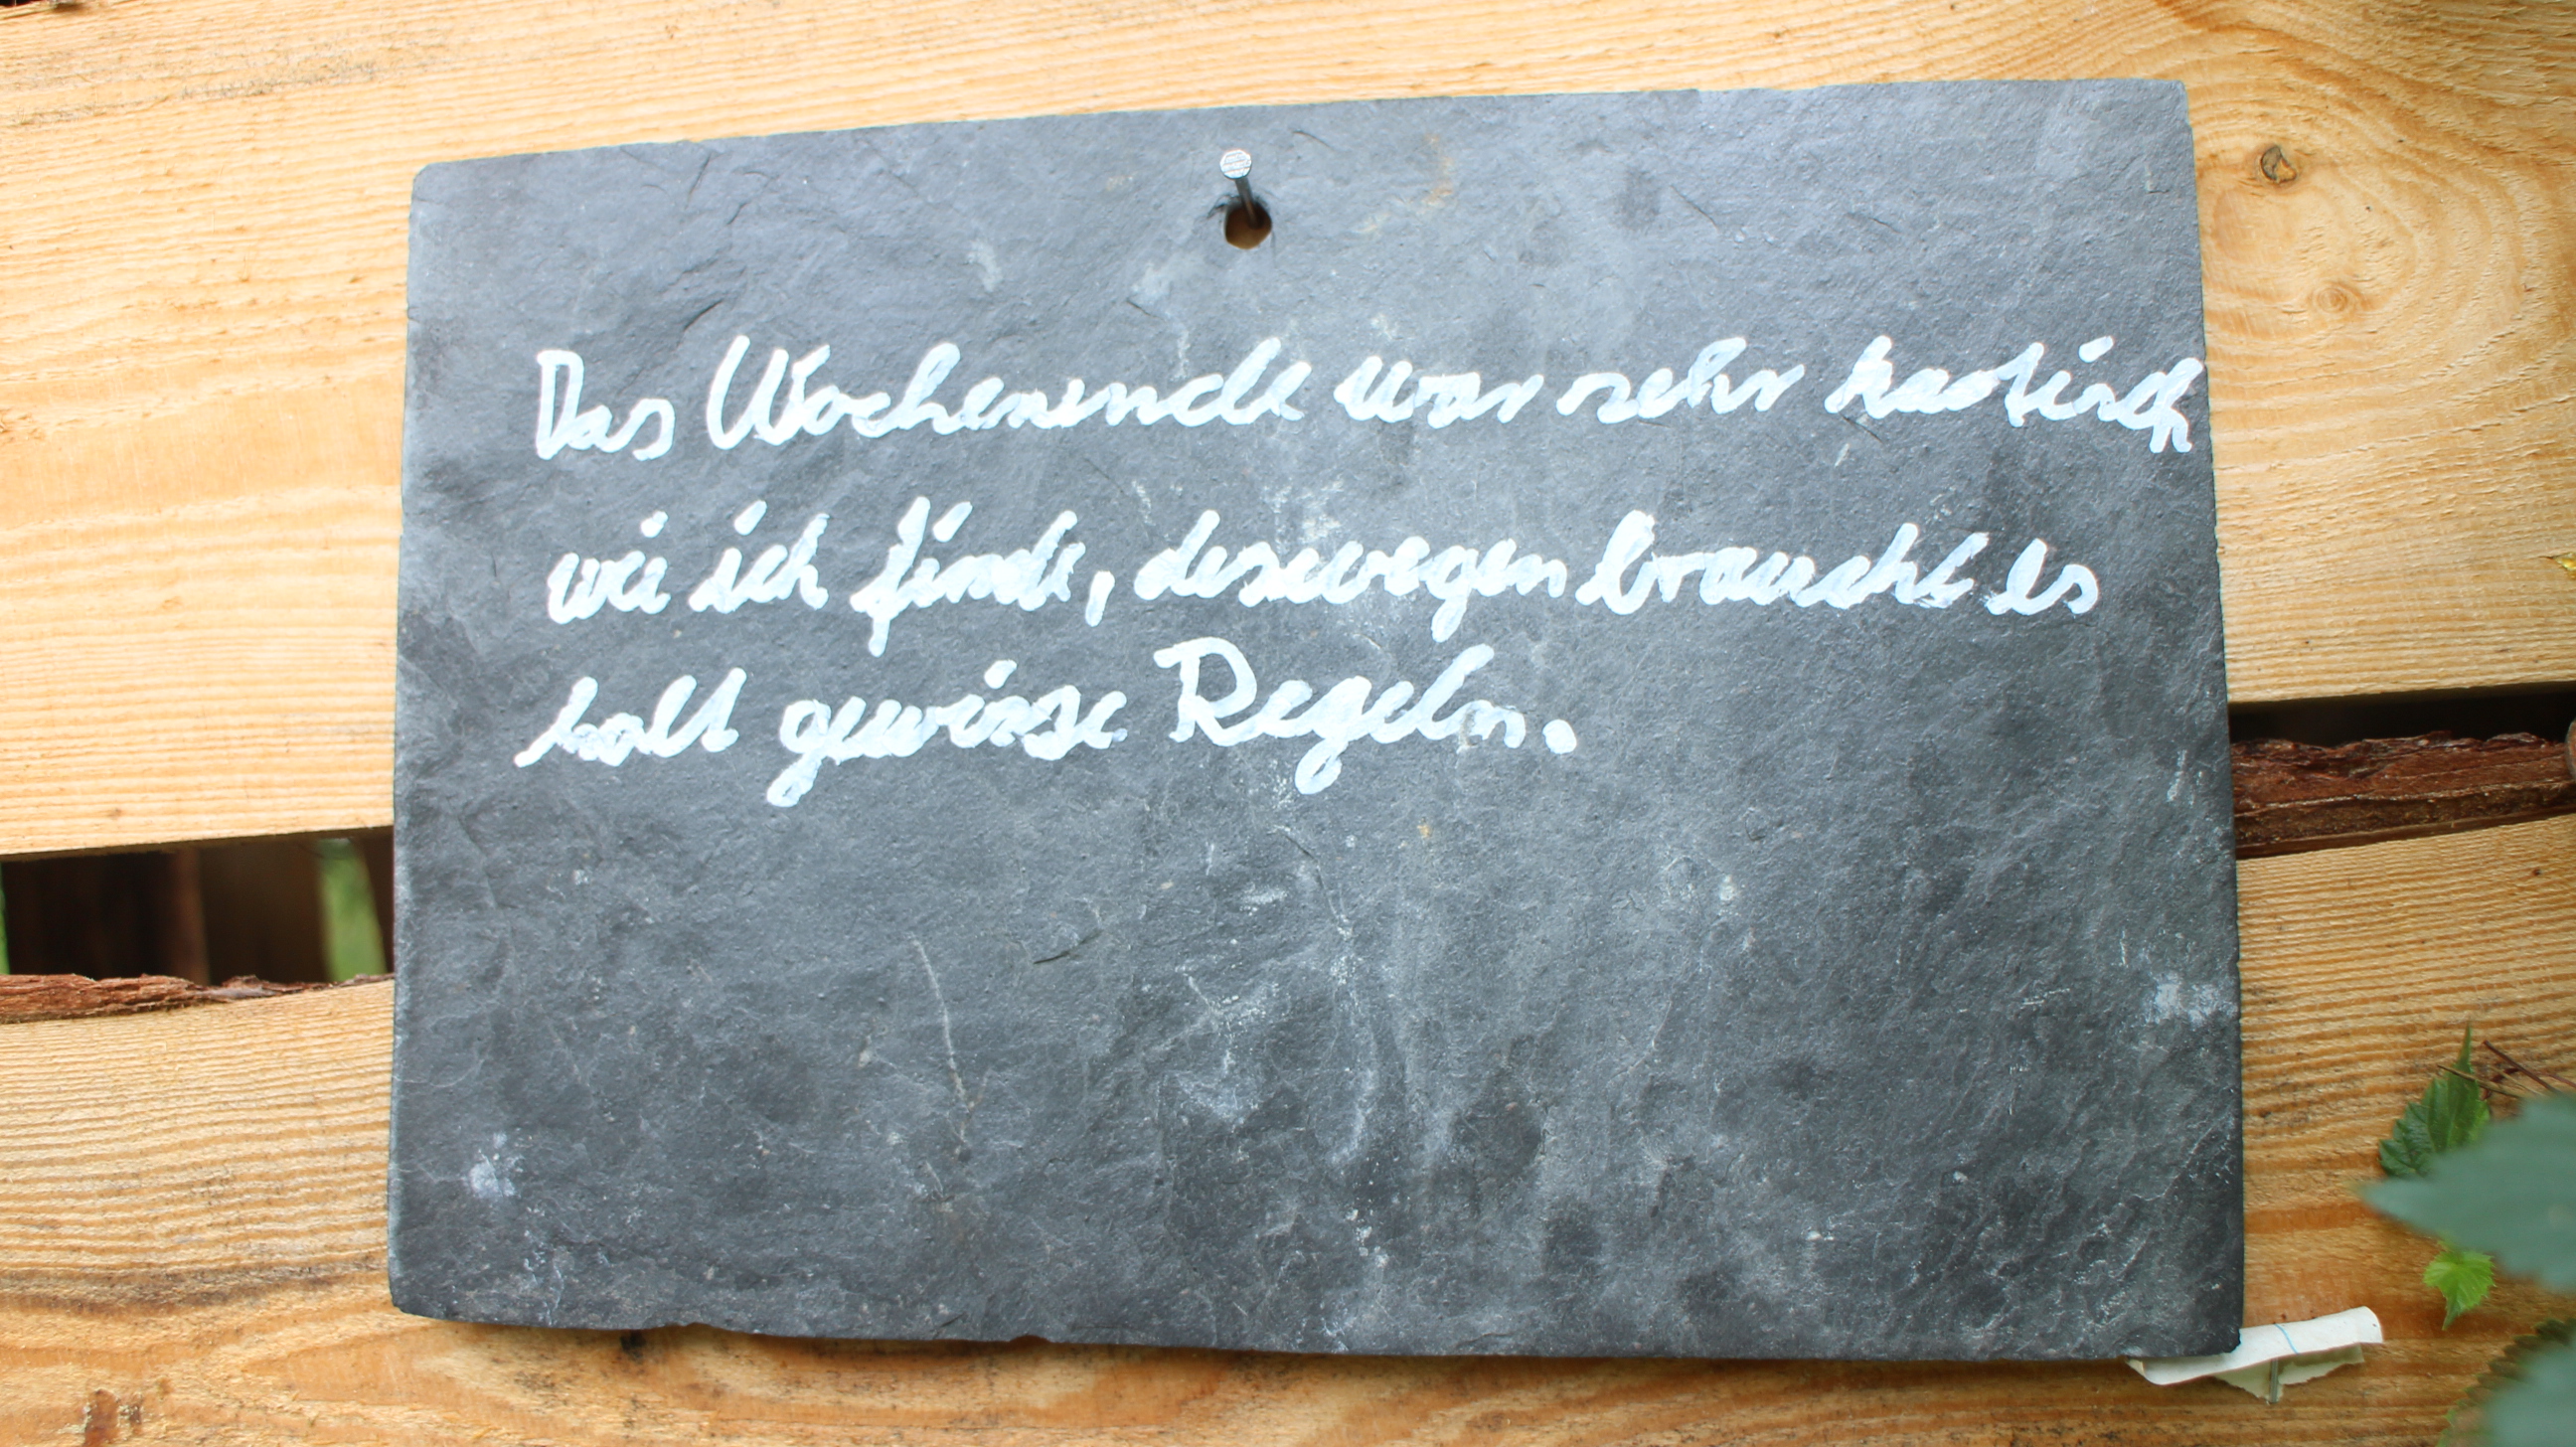 Das Wochenende war sehr kaotisch
wie ich finde, deswegen braucht es
halt gewisse Regeln.